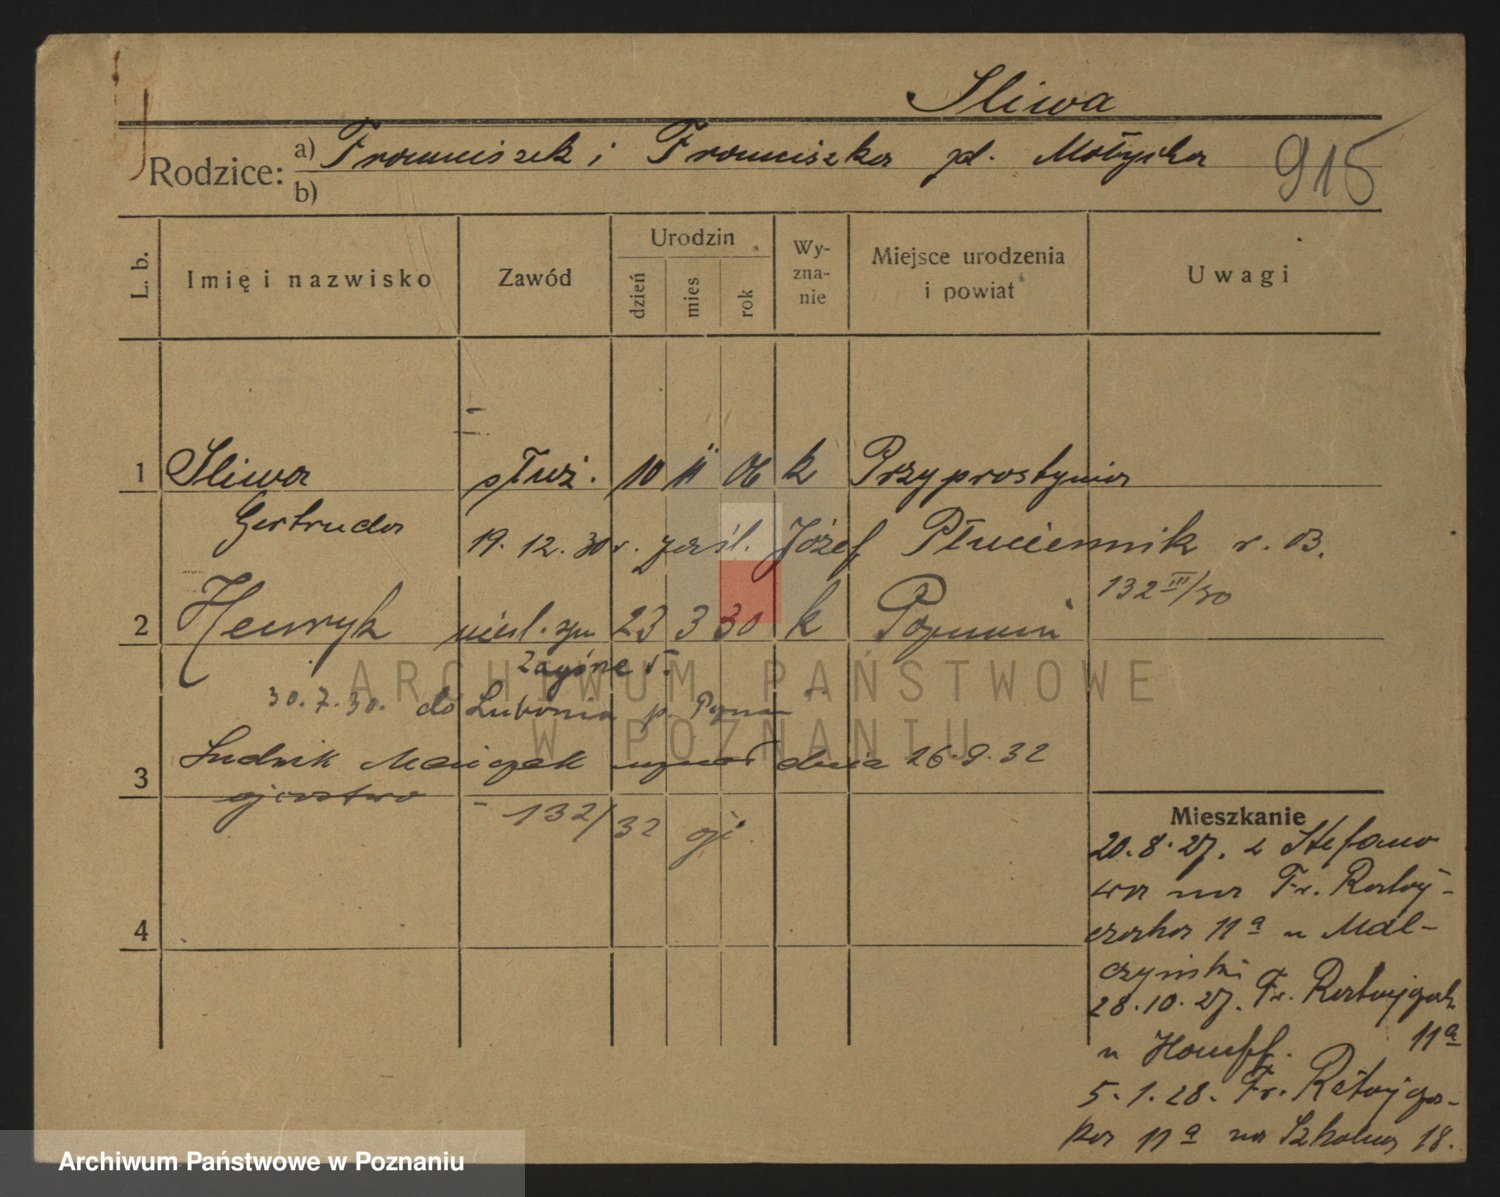 Śliwa
Rodzice: a) Franciszek i Franciszka pd. Motyska 915
b)
L. b. Imię i nazwisko Zawód Urodzin dzień mies rok Wyznanie Miejsce urodzenia i powiat Uwagi
1 Śliwa służ. 10 11 06 k Przyprostynia
Gertruda 19.12.30 r. zaśl. Józef Płuciennik r. B.
132 III/30
2 Henryk nieśl. syn 23 3 30 k Poznań
Zagórze 5.
30.7.30. do Lubonia p. Pozn
3 Ludwik Mańczak uznał dnia 26.9.32
ojcostwo - 132/32
4
Mieszkanie
20.8.27. z Stefano
wa na Fr. Rataj-
czaka 11a u Mal-
czyński
28.10.27. Fr. Ratajczak
11a
u
5.1.28. Fr. Ratajcza-
ka 11a na Szkolną 18.
ARCHIWUM PAŃSTWOWE
W POZNANIU
Archiwum Państwowe w Poznaniu